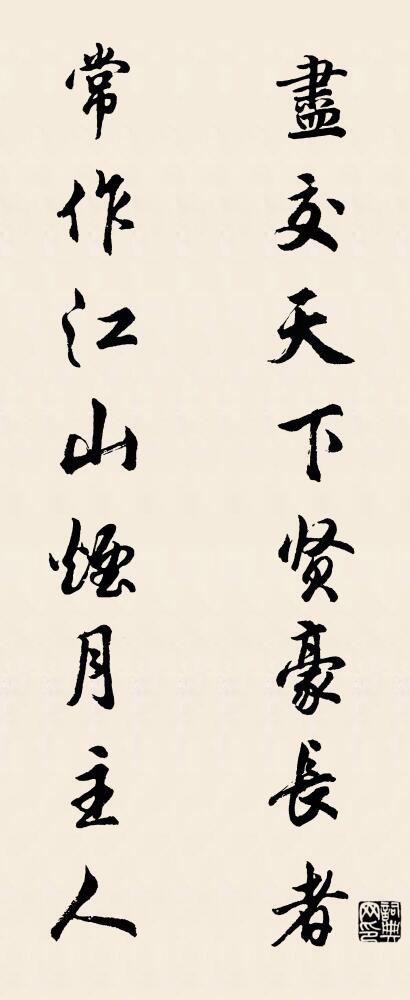 盡交天下贤豪長者
常作江山煙月主人
詞典网印